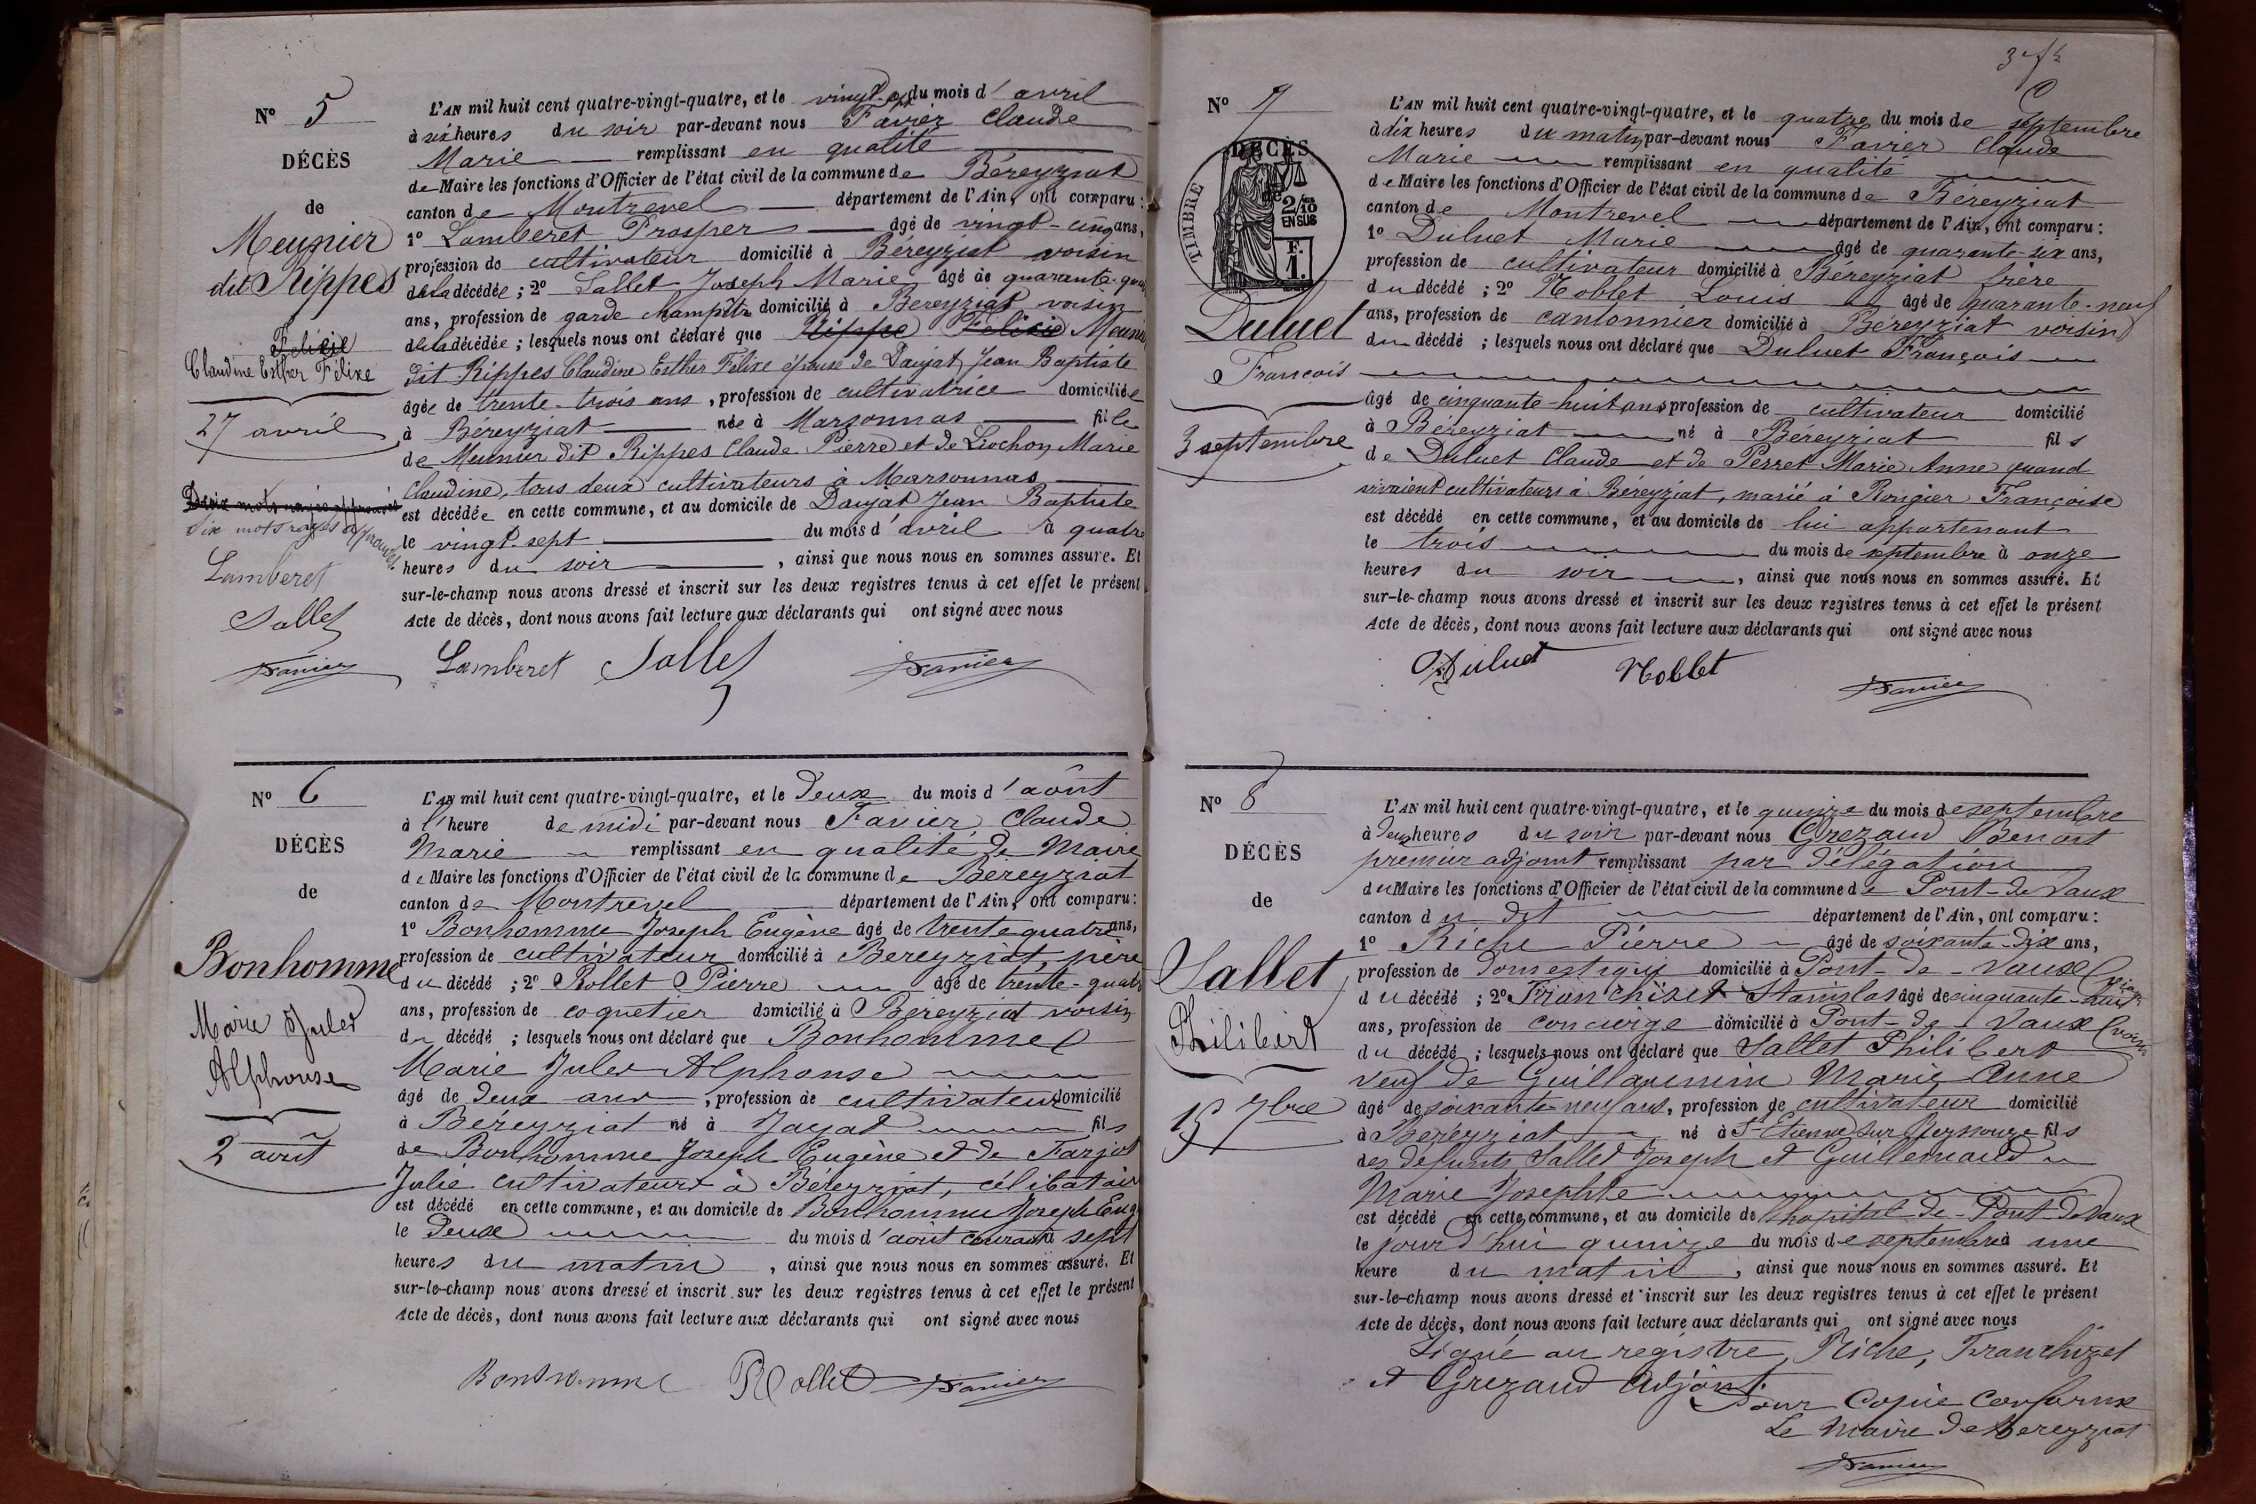 N° 5
DÉCÈS
de
Meunier
dit Rippes
Félicie
Claudine Esther Félixe
27 avril
Deux mots rayés approuvés
Dix mots rayés approuvés
Lamberet
Sallet
Favier
L'AN mil huit cent quatre-vingt-quatre, et le vingt-sept du mois d'avril
à six heures du soir par-devant nous Favier Claude
Marie remplissant en qualité
de Maire les fonctions d'Officier de l'état civil de la commune de Béreyziat
canton de Montrevel département de l'Ain, ont comparu :
1° Lamberet Prosper âgé de vingt-cinq ans,
profession de cultivateur domicilié à Béreyziat voisin
de la décédée ; 2° Sallet Joseph Marie âgé de quarante-quatre
ans, profession de garde champêtre domicilié à Béreyziat voisin
de la décédée ; lesquels nous ont déclaré que Rippe Félicie Meunier
dit Rippes Claudine Esther Félixe épouse de Daujat Jean Baptiste
âgée de trente-trois ans, profession de cultivatrice domiciliée
à Béreyziat née à Marsonnas fille
de Meunier dit Rippes Claude Pierre et de Lochon Marie
Claudine, tous deux cultivateurs à Marsonnas
est décédée en cette commune, et au domicile de Daujat Jean Baptiste
le vingt-sept du mois d'avril à quatre
heures du soir, ainsi que nous nous en sommes assuré. Et
sur-le-champ nous avons dressé et inscrit sur les deux registres tenus à cet effet le présent
Acte de décès, dont nous avons fait lecture aux déclarants qui ont signé avec nous
Lamberet Sallet Favier
N° 6
DÉCÈS
de
Bonhomme
Marie Jules
Alphonse
2 août
L'AN mil huit cent quatre-vingt-quatre, et le deux du mois d'août
à l'heure de midi par-devant nous Favier Claude
Marie remplissant en qualité de Maire
de Maire les fonctions d'Officier de l'état civil de la commune de Béreyziat
canton de Montrevel département de l'Ain, ont comparu :
1° Bonhomme Joseph Eugène âgé de trente quatre ans,
profession de cultivateur domicilié à Béreyziat, père
du décédé ; 2° Rollet Pierre âgé de trente-quatre
ans, profession de coquetier domicilié à Béreyziat voisin
du décédé ; lesquels nous ont déclaré que Bonhomme
Marie Jules Alphonse
âgé de deux ans, profession de cultivateur domicilié
à Béreyziat né à Jayat fils
de Bonhomme Joseph Eugène et de Farjot
Julie cultivateurs à Béreyziat, célibataire
est décédé en cette commune, et au domicile de Bonhomme Joseph Eug
le deux du mois d'août courant à sept
heures du matin, ainsi que nous nous en sommes assuré. Et
sur-le-champ nous avons dressé et inscrit sur les deux registres tenus à cet effet le présent
Acte de décès, dont nous avons fait lecture aux déclarants qui ont signé avec nous
Bonhomme Rollet Favier
N° 7
DÉCÈS
de
TIMBRE
2/10
EN SUS
F.
1.
Duluet
François
3 septembre
L'AN mil huit cent quatre-vingt-quatre, et le quatre du mois de septembre
à dix heures du matin par-devant nous Favier Claude
Marie remplissant en qualité
de Maire les fonctions d'Officier de l'état civil de la commune de Béreyziat
canton de Montrevel département de l'Ain, ont comparu :
1° Duluet Marie âgé de quarante-six ans,
profession de cultivateur domicilié à Béreyziat frère
du décédé ; 2° Noblet Louis âgé de quarante-neuf
ans, profession de cantonnier domicilié à Béreyziat voisin
du décédé ; lesquels nous ont déclaré que Duluet François
âgé de cinquante-huit ans profession de cultivateur domicilié
à Béreyziat né à Béreyziat fils
de Duluet Claude et de Perret Marie Anne quand
vivaient cultivateurs à Béreyziat, marié à Rongier Françoise
est décédé en cette commune, et au domicile de lui appartenant
le trois du mois de septembre à onze
heures du soir, ainsi que nous nous en sommes assuré. Et
sur-le-champ nous avons dressé et inscrit sur les deux registres tenus à cet effet le présent
Acte de décès, dont nous avons fait lecture aux déclarants qui ont signé avec nous
Duluet Noblet Favier
N° 8
DÉCÈS
de
Sallet
Philibert
15 7bre
L'AN mil huit cent quatre-vingt-quatre, et le quinze du mois de septembre
à deux heures du soir par-devant nous Grezaud Benoit
premier adjoint remplissant par délégation
du Maire les fonctions d'Officier de l'état civil de la commune de Pont-de-Vaux
canton du dit département de l'Ain, ont comparu :
1° Riche Pierre âgé de soixante-dix ans,
profession de domestique domicilié à Pont-de-Vaux (voisin
du décédé ; 2° Franchizet Stanislas âgé de cinquante-huit
ans, profession de concierge domicilié à Pont-de-Vaux (voisin
du décédé ; lesquels nous ont déclaré que Sallet Philibert
veuf de Guillaumin Marie Anne
âgé de soixante neuf ans, profession de cultivateur domicilié
à Béreyziat né à St Etienne sur Reyssouze fils
des défunts Sallet Joseph et Guillemaud
Marie Josephte
est décédé en cette commune, et au domicile de l'hopital de Pont-de-Vaux
le jourd'hui quinze du mois de septembre à une
heure du matin, ainsi que nous nous en sommes assuré. Et
sur-le-champ nous avons dressé et inscrit sur les deux registres tenus à cet effet le présent
Acte de décès, dont nous avons fait lecture aux déclarants qui ont signé avec nous
Signé au registre, Riche, Franchizet
et Grezaud adjoint.
Pour Copie Conforme
Le Maire de Béreyziat
Favier